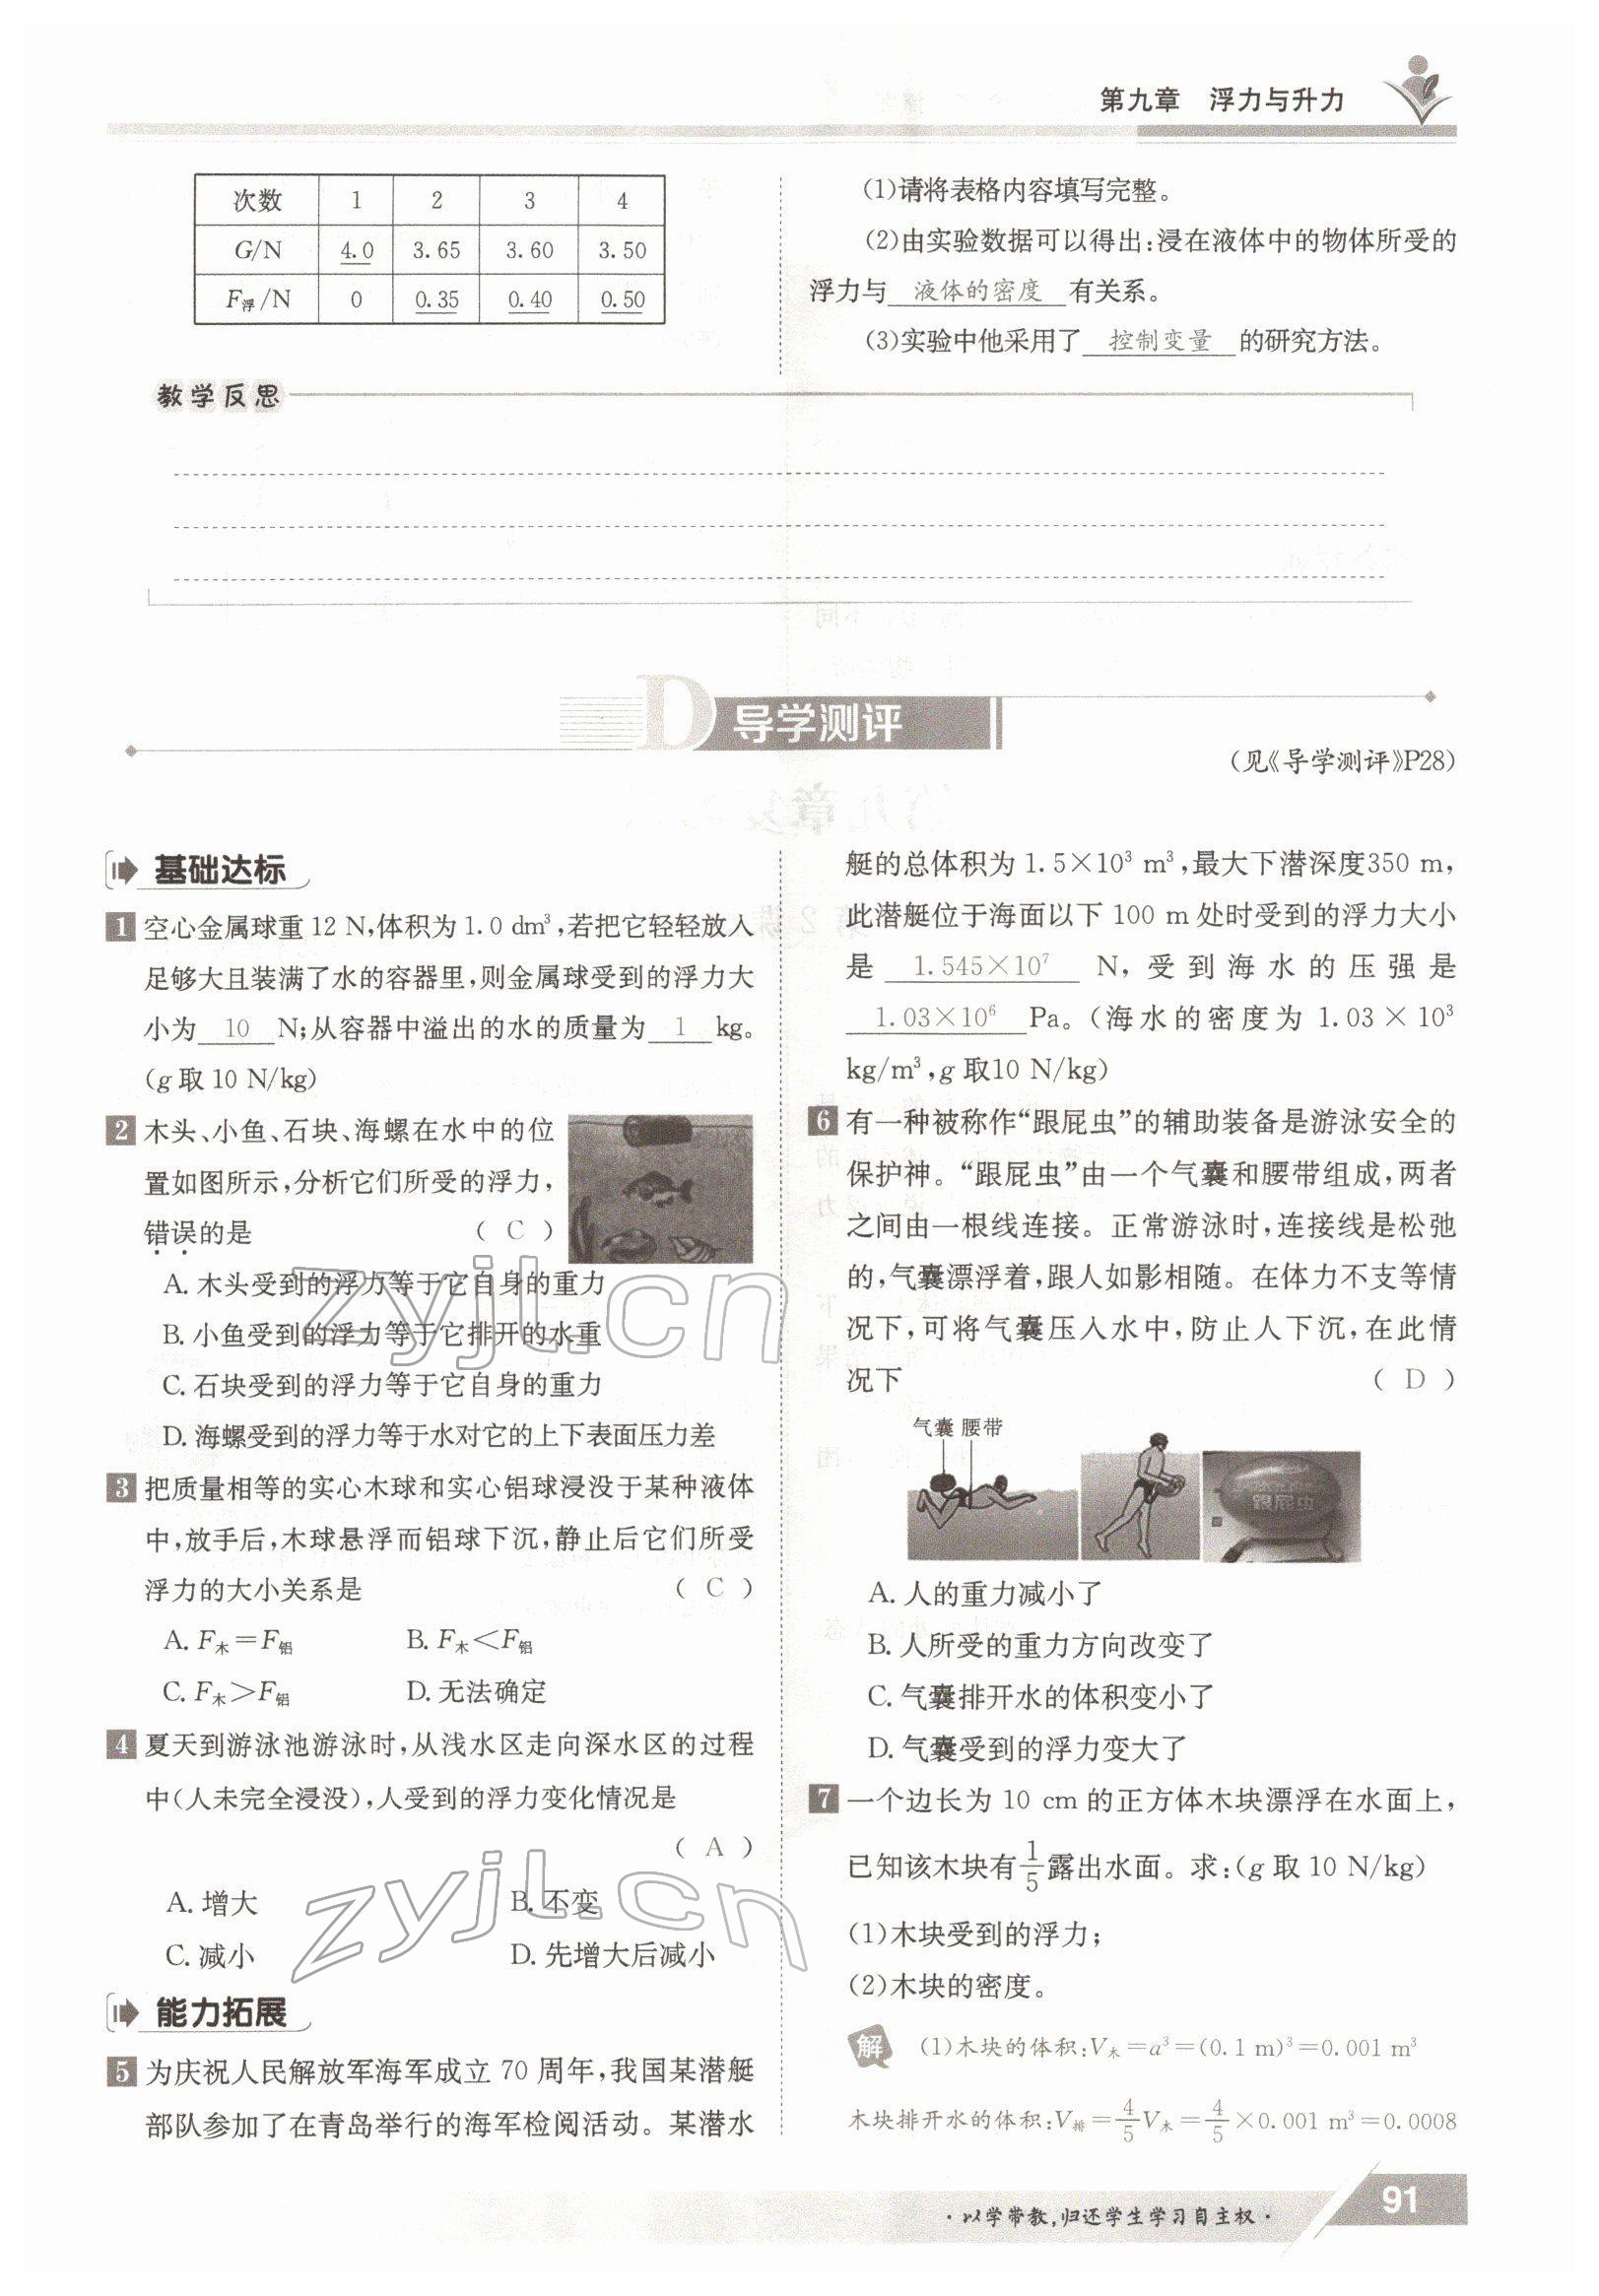 第九章 浮力与升力
次数 1 2 3 4
G/N 4.0 3.65 3.60 3.50
F浮/N 0 0.35 0.40 0.50
(1)请将表格内容填写完整。
(2)由实验数据可以得出:浸在液体中的物体所受的
浮力与 液体的密度 有关系。
(3)实验中他采用了 控制变量 的研究方法。
教学反思
D 导学测评
(见《导学测评》P28)
基础达标
1 空心金属球重 12 N,体积为 1.0 dm³,若把它轻轻放入
足够大且装满了水的容器里,则金属球受到的浮力大
小为 10 N;从容器中溢出的水的质量为 1 kg。
(g 取 10 N/kg)
2 木头、小鱼、石块、海螺在水中的位
置如图所示,分析它们所受的浮力,
错误的是 ( C )
A. 木头受到的浮力等于它自身的重力
B. 小鱼受到的浮力等于它排开的水重
C. 石块受到的浮力等于它自身的重力
D. 海螺受到的浮力等于水对它的上下表面压力差
3 把质量相等的实心木球和实心铝球浸没于某种液体
中,放手后,木球悬浮而铝球下沉,静止后它们所受
浮力的大小关系是 ( C )
A. F木=F铝 B. F木<F铝
C. F木>F铝 D. 无法确定
4 夏天到游泳池游泳时,从浅水区走向深水区的过程
中(人未完全浸没),人受到的浮力变化情况是
( A )
A. 增大 B. 不变
C. 减小 D. 先增大后减小
能力拓展
5 为庆祝人民解放军海军成立 70 周年,我国某潜艇
部队参加了在青岛举行的海军检阅活动。某潜水
艇的总体积为 1.5×10³ m³,最大下潜深度350 m,
此潜艇位于海面以下 100 m 处时受到的浮力大小
是 1.545×10⁷ N,受到海水的压强是
1.03×10⁶ Pa。(海水的密度为 1.03×10³
kg/m³,g 取10 N/kg)
6 有一种被称作“跟屁虫”的辅助装备是游泳安全的
保护神。“跟屁虫”由一个气囊和腰带组成,两者
之间由一根线连接。正常游泳时,连接线是松弛
的,气囊漂浮着,跟人如影相随。在体力不支等情
况下,可将气囊压入水中,防止人下沉,在此情
况下 ( D )
气囊 腰带
跟屁虫
A. 人的重力减小了
B. 人所受的重力方向改变了
C. 气囊排开水的体积变小了
D. 气囊受到的浮力变大了
7 一个边长为 10 cm 的正方体木块漂浮在水面上,
已知该木块有1/5露出水面。求:(g 取 10 N/kg)
(1)木块受到的浮力;
(2)木块的密度。
解 (1)木块的体积:V木=a³=(0.1 m)³=0.001 m³
木块排开水的体积:V排=4/5V木=4/5×0.001 m³=0.0008
·以学带教,归还学生学习自主权·
91
zyjl.cn
zyjl.cn